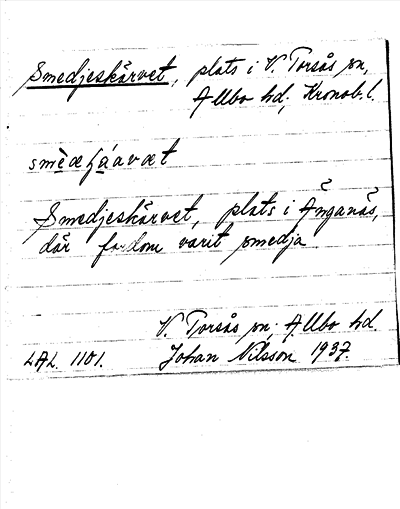 Smedjeskärvet, plats i V. Torsås sn,
Allbo hd, Kronob. l.
smèdeʃáavæt
Smedjeskärvet, plats i Änganäs,
där fordom varit smedja.
V. Torsås sn, Allbo hd.
LAL. 1101. Johan Nilsson 1937.